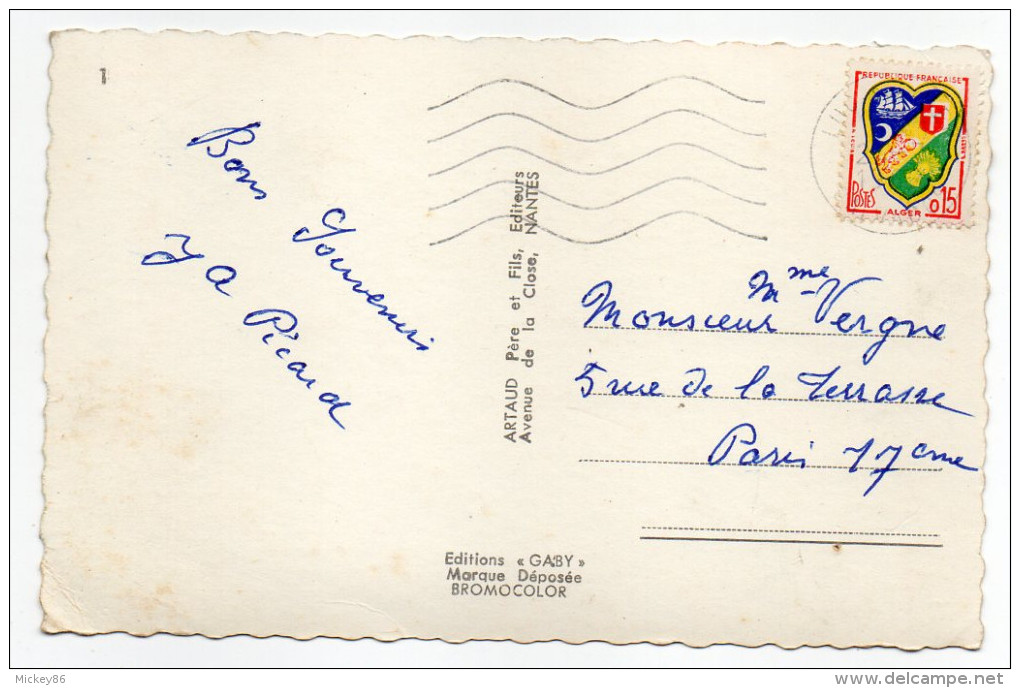 1
Bons Souvenirs
J A Picard
ARTAUD Père et Fils, Editeurs
Avenue de la Close, NANTES
REPUBLIQUE FRANÇAISE
POSTES
ALGER
0,15
Monsieur Mme Vergne
5 rue de la Terrasse
Paris 17ème
Editions « GABY »
Marque Déposée
BROMOCOLOR
Mickey86
delcampe.net